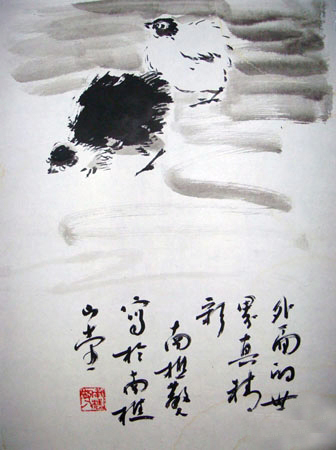 外面的世
界真精
彩
南樵
寫於南樵
山堂